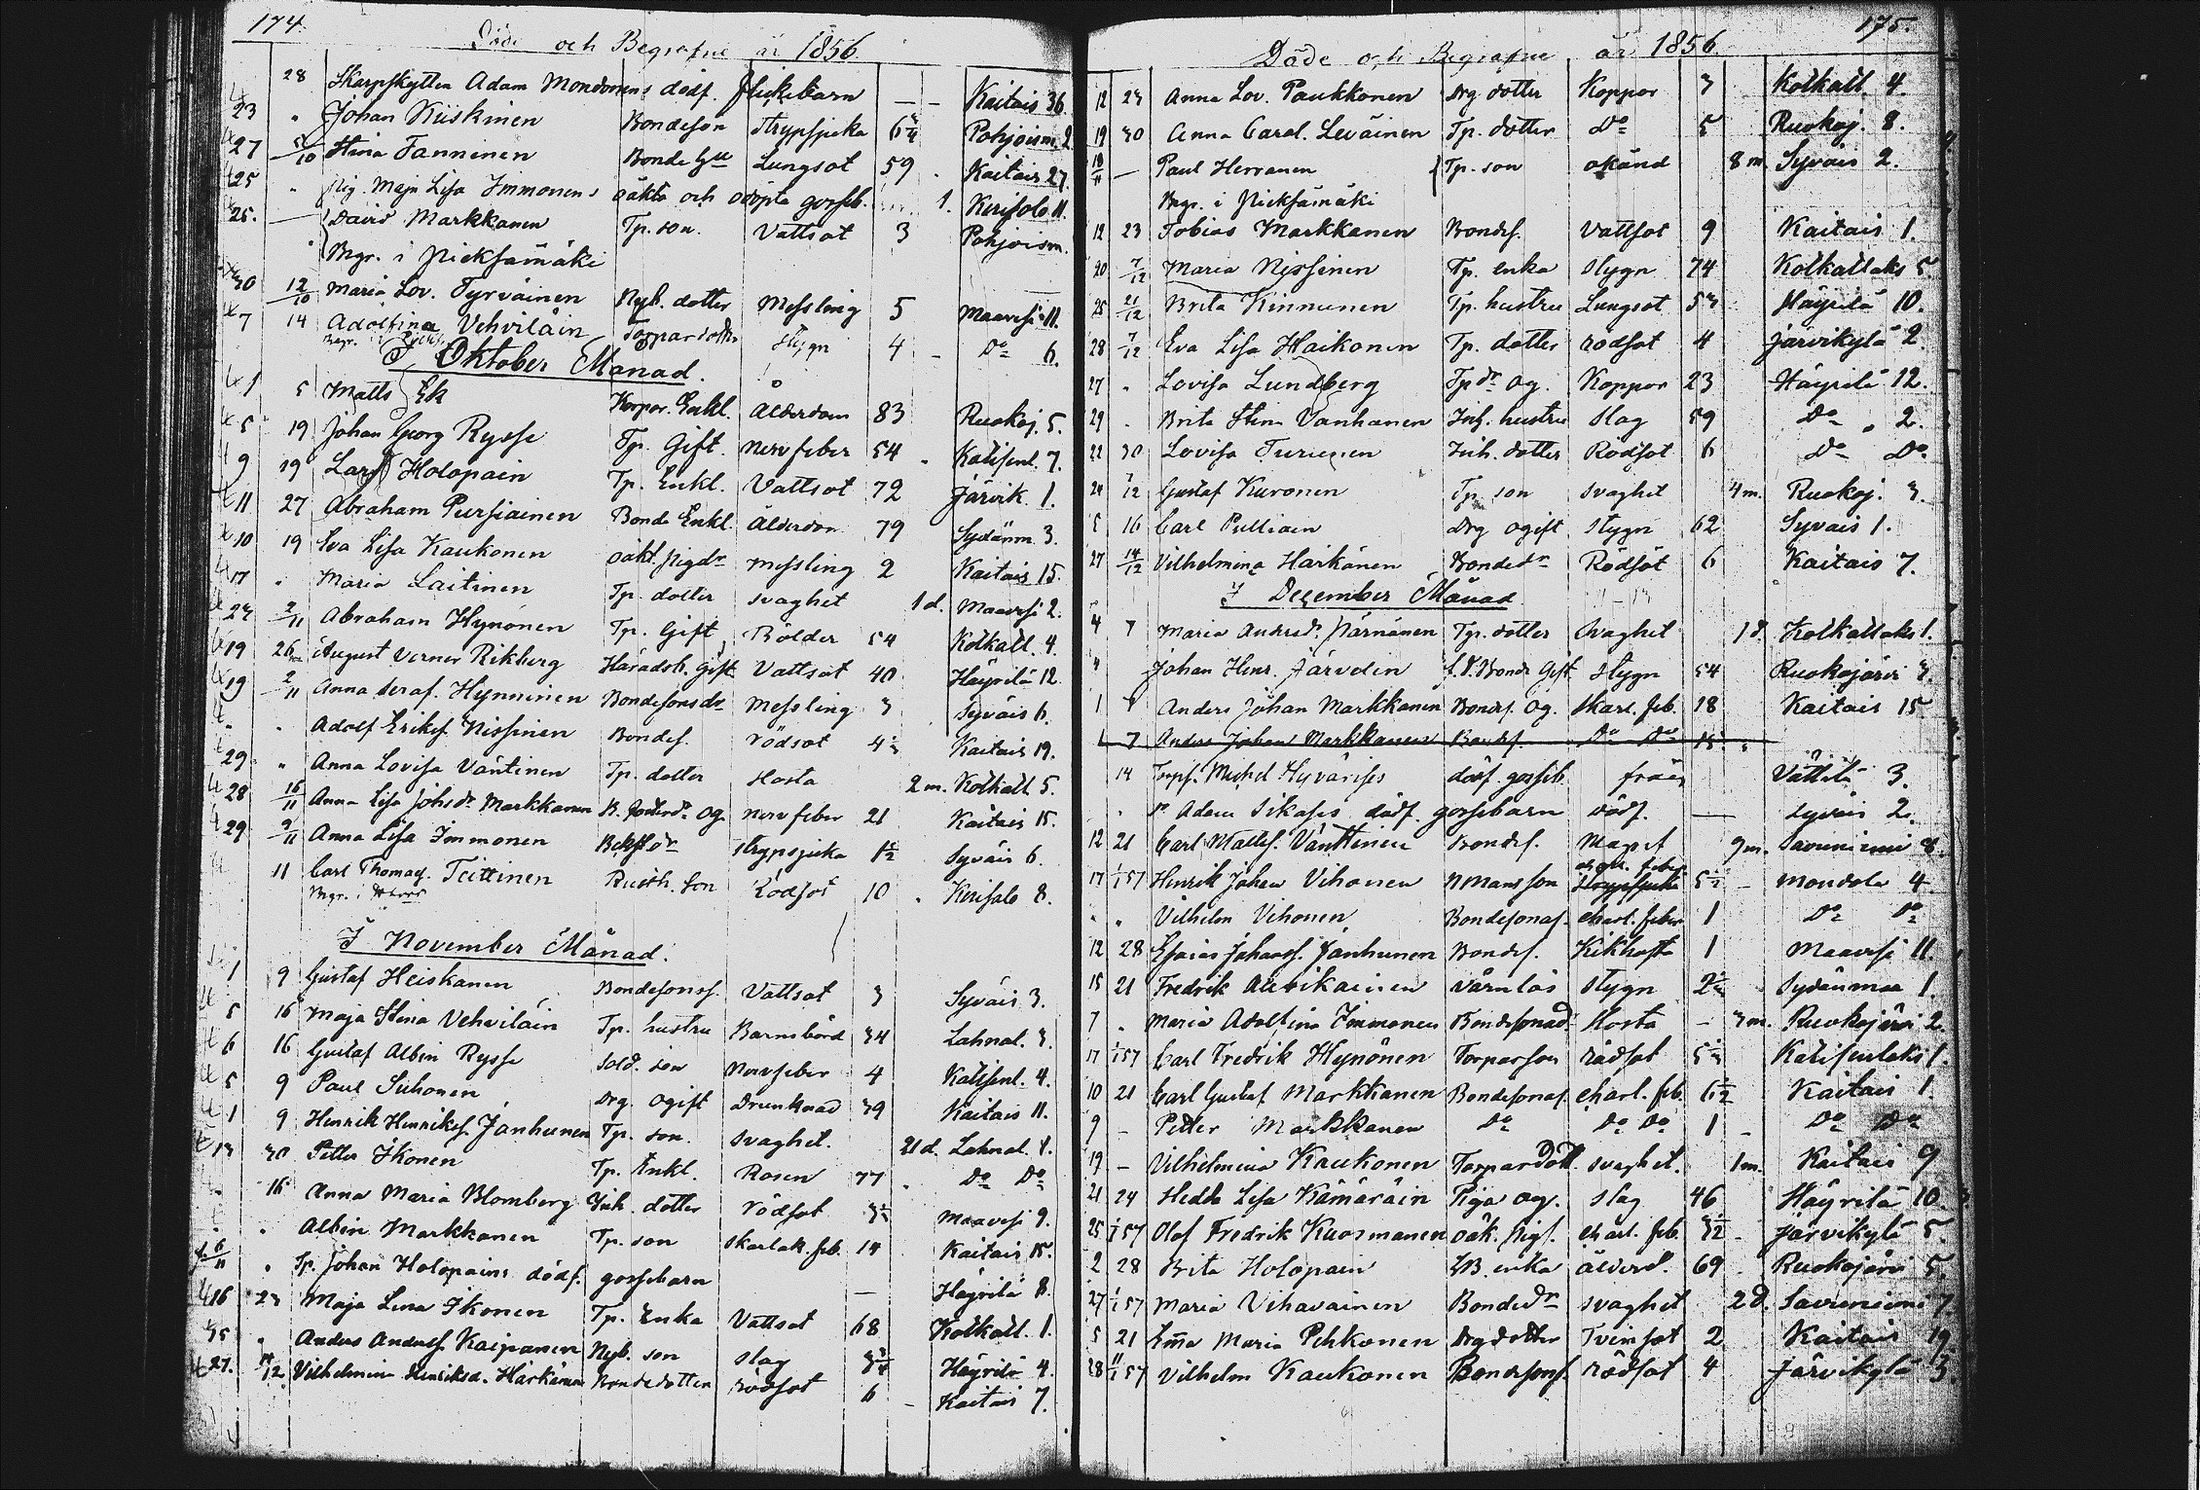 174.
Döde och Begrafne år 1856.
28 Skarpskytten Adam Mondonens dödf. flickebarn — – Kaitais 36.
23 " Johan Kiiskinen Bondeson Strypsjuka 6 3/4 Pohjoism. 2
27 5/10 Stina Tanninen Bonde Lungsot 59 Kaitais 27.
25 " Pig. Maja Lisa Immonens oäkta och odöpta gosseb. 1. Kerisalo 11.
25. — David Markkanen Tp. son. Vattsot 3 Pohjoism.
" Begr. i Pieksämäki
30 12/10 Maria Lov. Tyrväinen Nyb. dotter Messling 5 Maavesi 11.
7 14 Adolfina Vehviläin Torpardotter Stygn 4 – Do 6.
I Oktober Månad.
1 5 Matts Ek Korpor. Enkl. Ålderdom 83 Ruokoj. 5.
5 19 Johan Georg Rysse Tp. Gift. Nervfeber 54 Katisenl. 7.
9 19 Lars Holopain Tp. Enkl. Vattsot 72 Järvik. 1.
11 27 Abraham Pursiainen Bonde Enkl. Ålderdom 79 Sydänm. 3.
10 19 Eva Lisa Kaukonen oäkt. Pigdr messling 2 Kaitais 15.
17 " Maria Laitinen Tp. dotter svaghet 1 d. Maavesi 2.
23 2/11 Abraham Hynönen Tp. Gift Bölder 54 Kotkatl. 4.
19 26 August Verner Rikberg Häradsh. Gift Vattsot 40 Häyrilä 12
19 2/11 Anna Seraf. Hynninen Bondesonsdr Messling 3 Syväis 6.
" " Adolf Eriksf. Nissinen Bondes. rödsot 4 1/2 Kaitais 19.
29 " Anna Lovisa Väntinen Tp. dotter Hosta 2 m. Kotkatl. 5.
28 16/11 Anna Lisa Johsdr Markkanen B. dotterdr og. nervfeber 21 Kaitais 15.
29 9/11 Anna Lisa Immonen strypsjuka 1 1/2 Syväis 6.
11 Carl Thomasf. Teittinen Rusth. Son Rödsot 10 Kerisalo 8.
I November Månad.
1 9 Gustaf Heiskanen Bondesonsf. Vattsot 3 Syväis 3.
5 16 Maja Stina Vehviläin Tp. hustru Barnsbörd 34 Lahnal. 3.
6 16 Gustaf Albin Rysse Sold. son Nervfeber 4 Katisenl. 4.
5 9 Paul Suhonen drg. ogift Drunknad 39 Kaitais 11.
1 9 Henrik Henriksf. Janhunen Tp. son. svaghet. 21 d. Lahnal. 1.
13 30 Petter Ikonen Tp. Enkl. Rosen 77 Do Do
" 16 Anna Maria Blomberg Inh. dotter rödsot 3 1/2 Maavesi 9.
" Albin Markkanen Tp. son skarlak. feb. 14 Kaitais 15.
6/11 " Tp. Johan Holopains dödf. gossebarn — Häyrilä 8.
16 23 Maja Lena Ikonen Tp. Enka Vattsot 68 Kotkatl. 1.
" Anders Andersf. Kaipanen Nyb. son slag 3 3/4 Häyrilä 4.
27. 14/12 Vilhelmina Henriksd. Härkänen Bondedotter rödsot 6 – Kaitais 7.
175.
Döde och Begrafne år 1856
12 23 Anna Lov. Paukkonen drg dotter Koppor 3 Kotkatl. 4.
19 30 Anna Carol. Leväinen Tp. dotter Do 5 Ruokoj. 8.
18/11 — Paul Herranen Tp. son okänd 8 m. Syväis 2.
Begr. i Pieksämäki
12 23 Tobias Markkanen Bondes. Vattsot 9 Kaitais 1.
20 7/12 Maria Nissinen Tp. enka stygn 74 Kotkatlaks 5.
25 21/12 Brita Kinnunen Tp. hustru Lungsot 53 Häyrilä 10.
28 7/12 Eva Lisa Haikonen Tp. dotter rödsot 4 Järvikylä 2.
27 " Lovisa Lundberg Tpdr og. Koppor 23 Häyrilä 12.
29 " Brita Stina Vanhanen Inh. hustru slag 59 Do 2.
22 30 Lovisa Turunen Inh. dotter Rödsot 6 Do Do
24 7/12 Gustaf Kuronen Tp. son svaghet 4 m. Ruokoj. 3.
5 16 Carl Pulliain drg ogift stygn 62 Syväis 1.
27 14/12 Vilhelmina Härkänen Bondedr Rödsot 6 Kaitais 7.
I December Månad
4 7 Maria Andersdr Pärnänen Tp. dotter svaghet 1 d. Kotkatlaks 1.
" Johan Henr. Järvelin Bonde Gift stygn 54 Ruokojärvi 3.
1 Anders Johan Markkanen Bondes. og. skarl. feb. 18 Kaitais 15
1 7 Anders Johan Markkanen Bondes. Do Do 18
14 Torpf. Michel Hyväriss dödf. gosseb. Vättilä 3.
" Dr Adam Sikasis dödf. gossebarn dödf. — Syväis 2.
12 21 Carl Mattsf. Vänttinen Bondes. Magref 9 m. Savuniemi 8.
17 1/1 57 Henrik Johan Vihonen Nmans son charl. feber 5 1/2 – Mondola 4
" " Vilhelm Vihonen Bondesonsf. charl. feber 1 Do Do
12 28 Esaias Johansf. Janhunen Bondes. Kikhosta 1 Maavesi 11.
15 21 Fredrik Auvikainen värnlös stygn 2 1/2 Sydänmaa 1.
7 " Maria Adolfina Immonen Bondesonsd. Hosta – 3 m. Ruokojärvi 2.
17 1/1 57 Carl Fredrik Hynönen Torparson rödsot 5 1/2 Katisenlaks 1.
10 21 Carl Gustaf Markkanen Bondesonsf. charl. feb. 6 1/2 Kaitais 1.
9 – Petter Markkanen Do Do Do 1 – Do Do
19 – Vilhelmina Kaukonen Torpardott. svaghet. 1 m. Kaitais 9
21 24 Hedda Lisa Kämäräin Piga og. slag 46 Häyrilä 10.
25 1/1 57 Olof Fredrik Kuosmanen oäk. pigf. charl. feb. 3 1/2 – Järvikylä 5.
2 28 Brita Holopain enka ålderd. 69 Ruokojärvi 5.
27 1/1 57 Maria Vihavainen Bondedr svaghet 2 d. Savuniemi 7.
5 21 Emma Maria Pehkonen Drgdotter Tvinsot 2 Kaitais 19.
28 11/1 57 Vilhelm Kaukonen Bondesons. rödsot 4 Järvikylä 3.